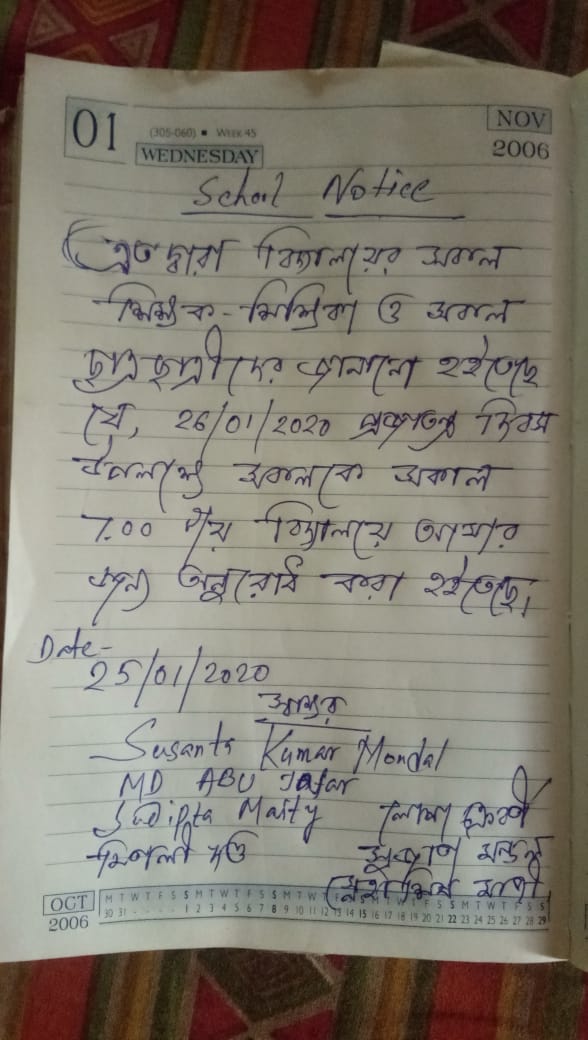 01
(305-060) ■ WEEK 45
WEDNESDAY
NOV
2006
School Notice
এতদ্বারা বিদ্যালয়ের সকল
শিক্ষক-শিক্ষিকা ও সকল
ছাত্রছাত্রীদের জানানো হইতেছে
যে, 26/01/2020 প্রজাতন্ত্র দিবস
উপলক্ষে সকলকে সকাল
7.00 টায় বিদ্যালয়ে আসার
জন্য অনুরোধ করা হইতেছে।
Date-
25/01/2020
স্বাক্ষর
Susanta Kumar Mondal
MD ABU Jafar
Sudipta Maity
মিতালী দত্ত মন্ডল
OCT
2006
M T W T F S S M T W T F S S M T W T F S S M T W T F S S M T W T F S S
30 31 - - - - 1 2 3 4 5 6 7 8 9 10 11 12 13 14 15 16 17 18 19 20 21 22 23 24 25 26 27 28 29